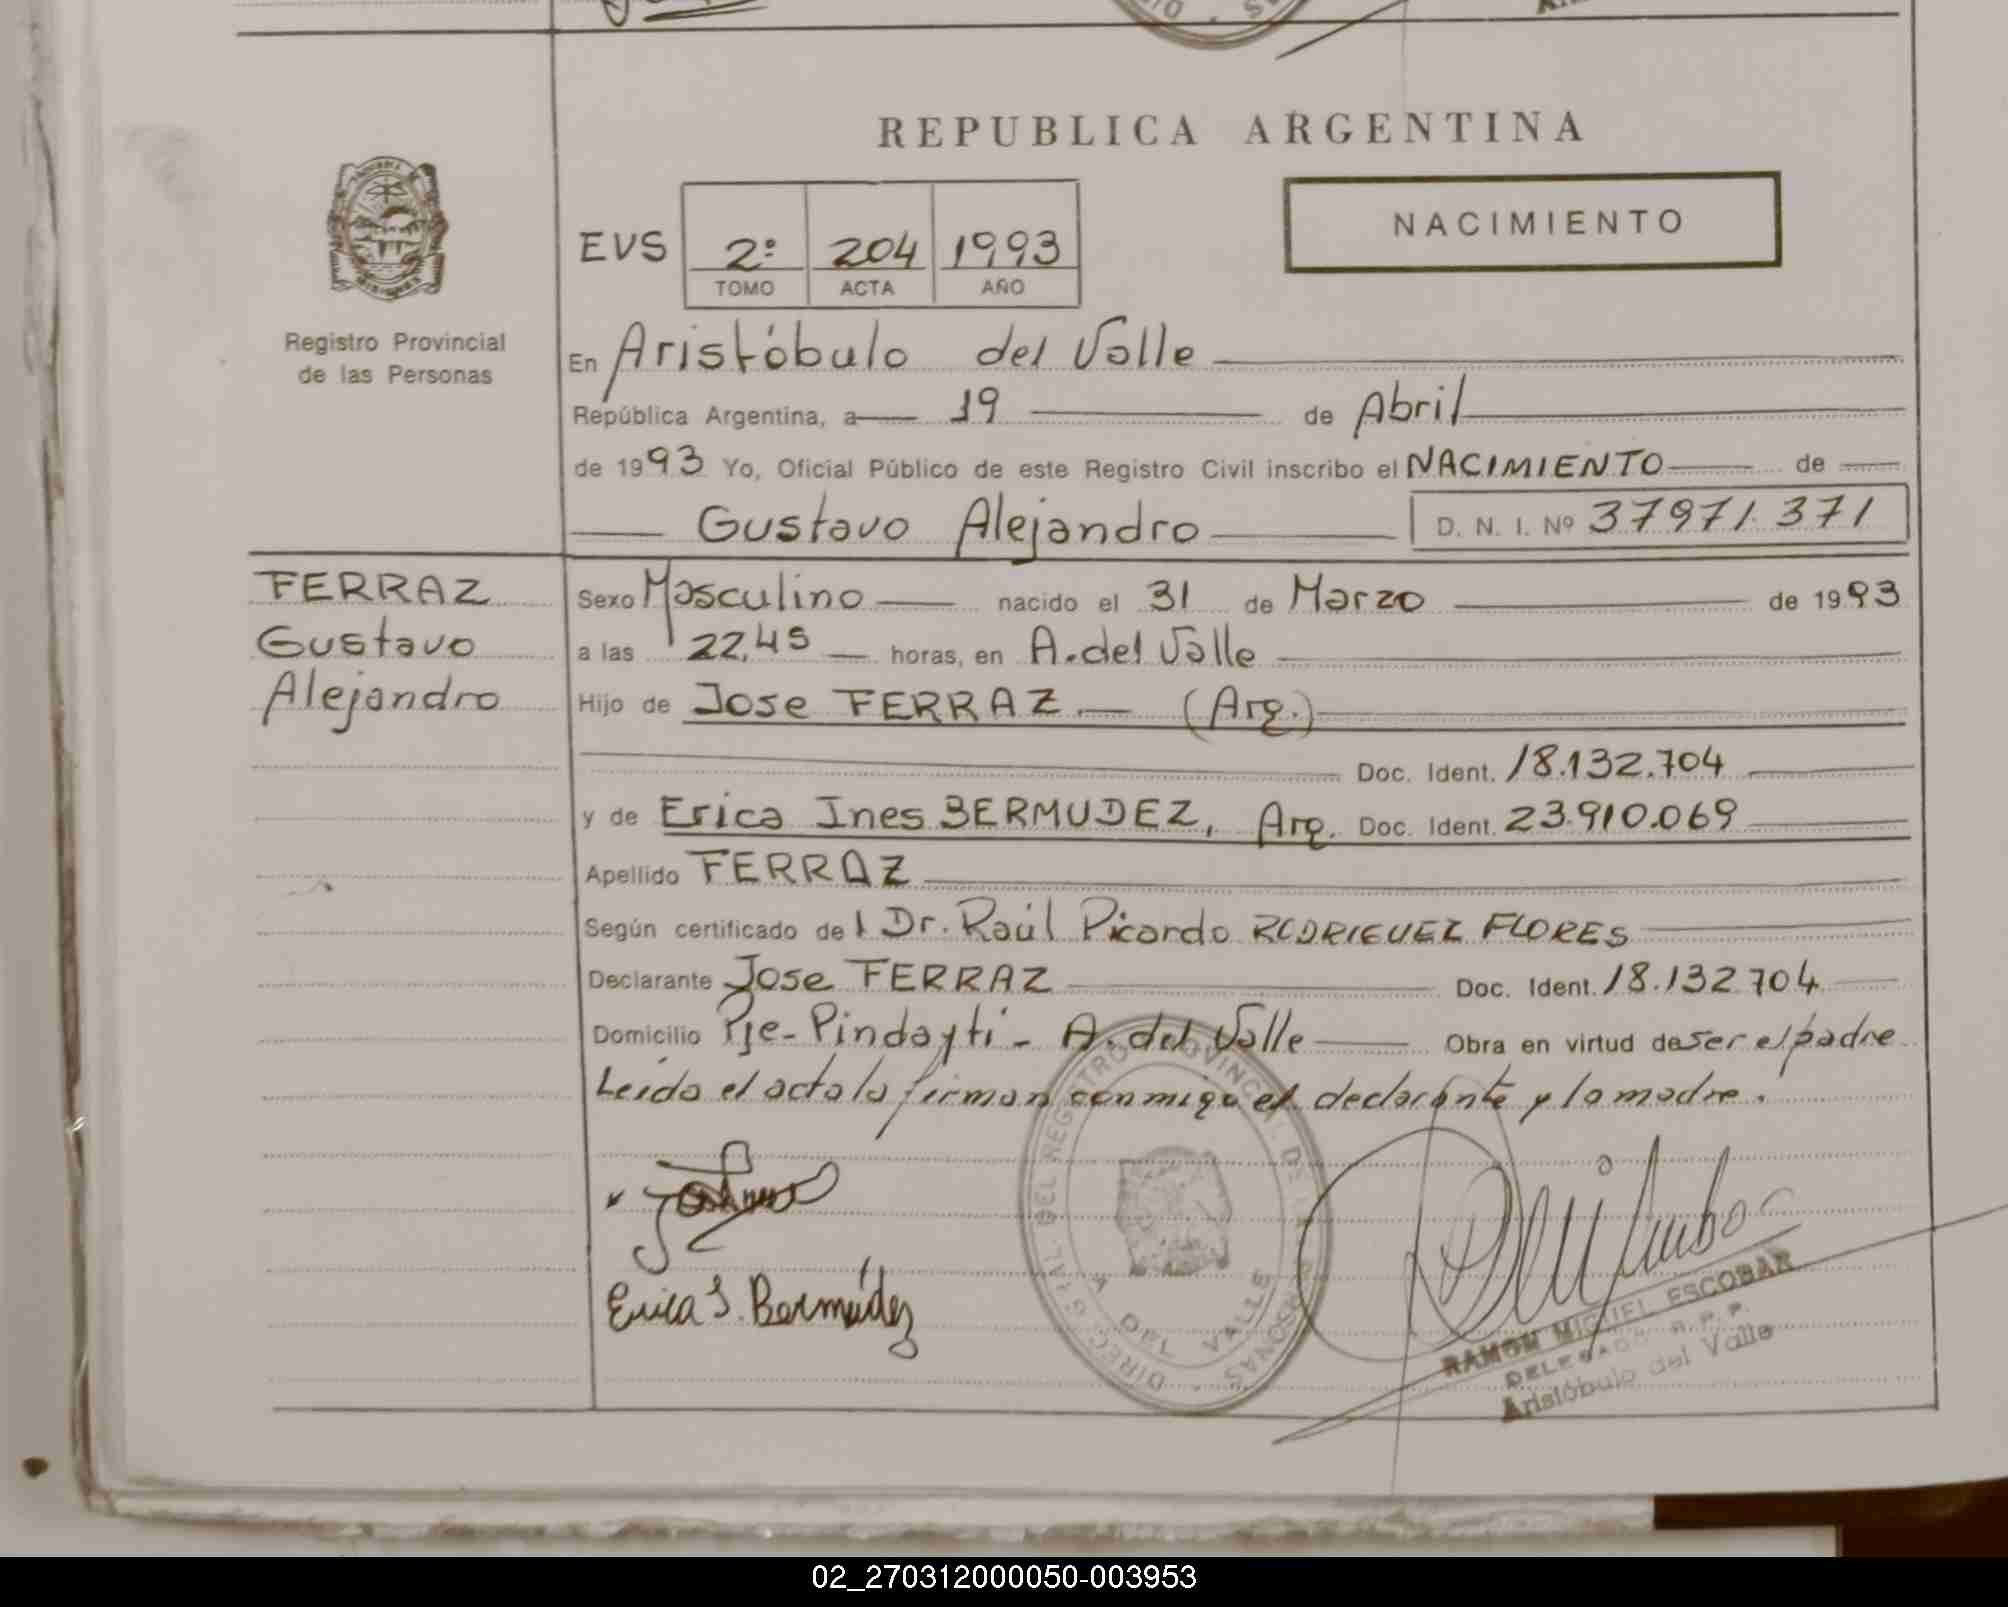 REPUBLICA ARGENTINA
NACIMIENTO
EVS 2º 204 1993
TOMO ACTA AÑO
Registro Provincial
de las Personas
En Aristóbulo del Valle
República Argentina, a 19 de Abril
de 1993 Yo, Oficial Público de este Registro Civil inscribo el NACIMIENTO de
Gustavo Alejandro D. N. I. Nº 37971.371
FERRAZ
Gustavo
Alejandro
Sexo Masculino nacido el 31 de Marzo de 1993
a las 22,45 horas, en A. del Valle
Hijo de Jose FERRAZ (Arg.)
Doc. Ident. 18.132.704
y de Erica Ines BERMUDEZ, Arg. Doc. Ident. 23.910.069
Apellido FERRAZ
Según certificado del Dr. Raúl Ricardo RODRIGUEZ FLORES
Declarante Jose FERRAZ Doc. Ident. 18.132704
Domicilio Pje- Pindayti - A. del Valle Obra en virtud de ser el padre
Leída el acta la firman conmigo el declarante y la madre.
Erica I. Bermúdez
DIREC. GRAL. DEL REGISTRO PROVINCIAL DE LAS PERSONAS
A. DEL VALLE
RAMON MIGUEL ESCOBAR
DELEGADO R. P. P.
Aristóbulo del Valle
02_270312000050-003953